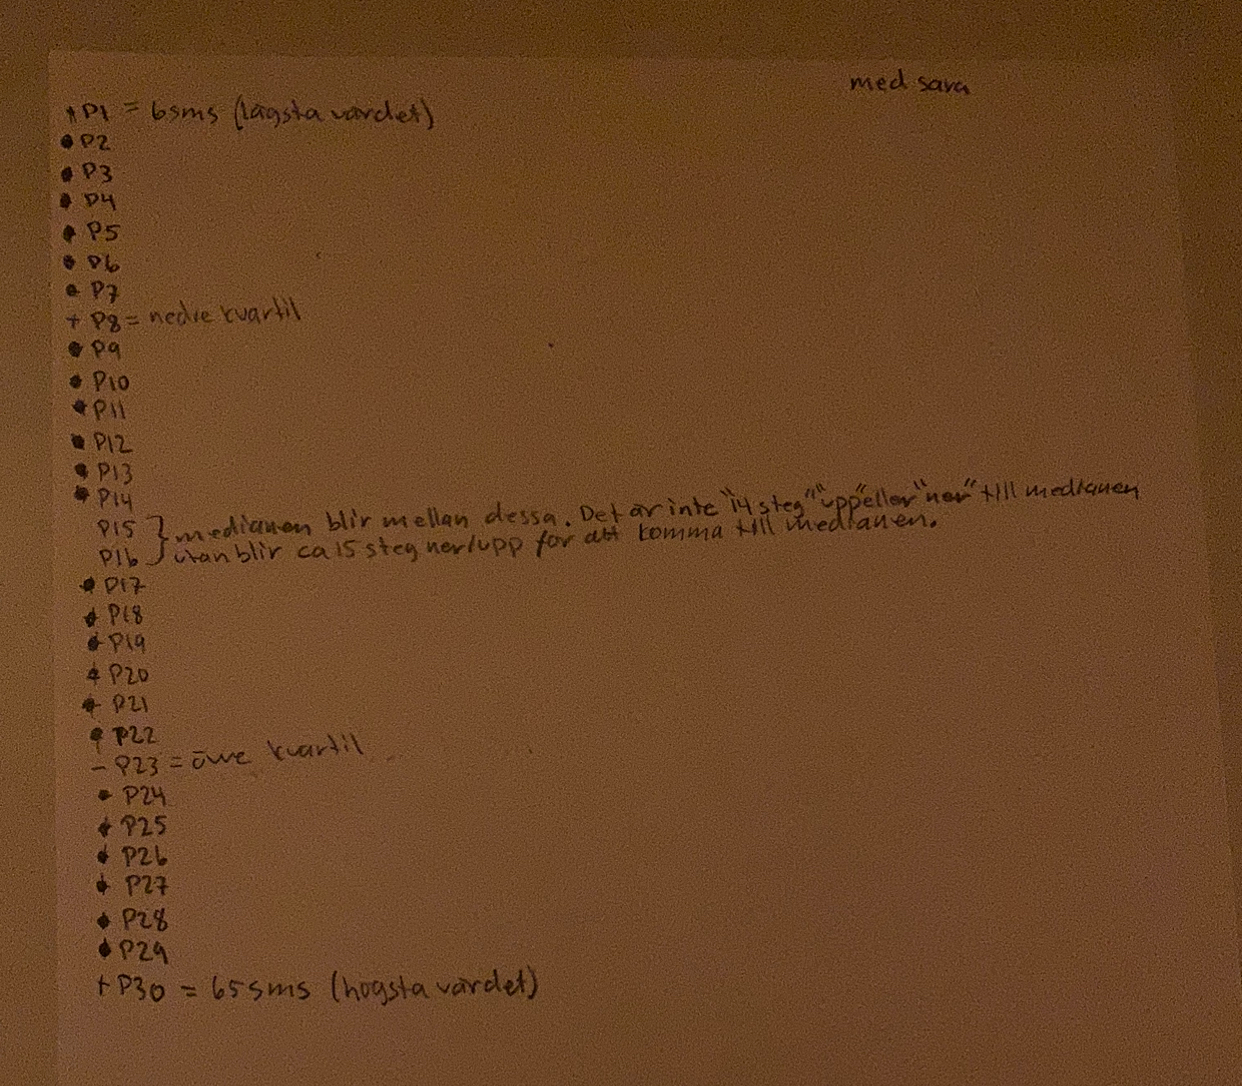 med sara
P1 = 6sms (lägsta värdet)
P2
P3
P4
P5
P6
P7
+ P8 = nedre kvartil
P9
P10
P11
P12
P13
P14
P15 } medianen blir mellan dessa. Det är inte "14 steg" "upp" eller "ner" till medianen
P16 } utan blir ca 15 steg ner/upp för att komma till medianen.
P17
P18
P19
P20
P21
P22
- P23 = övre kvartil
P24
P25
P26
P27
P28
P29
+ P30 = 65 sms (högsta värdet)